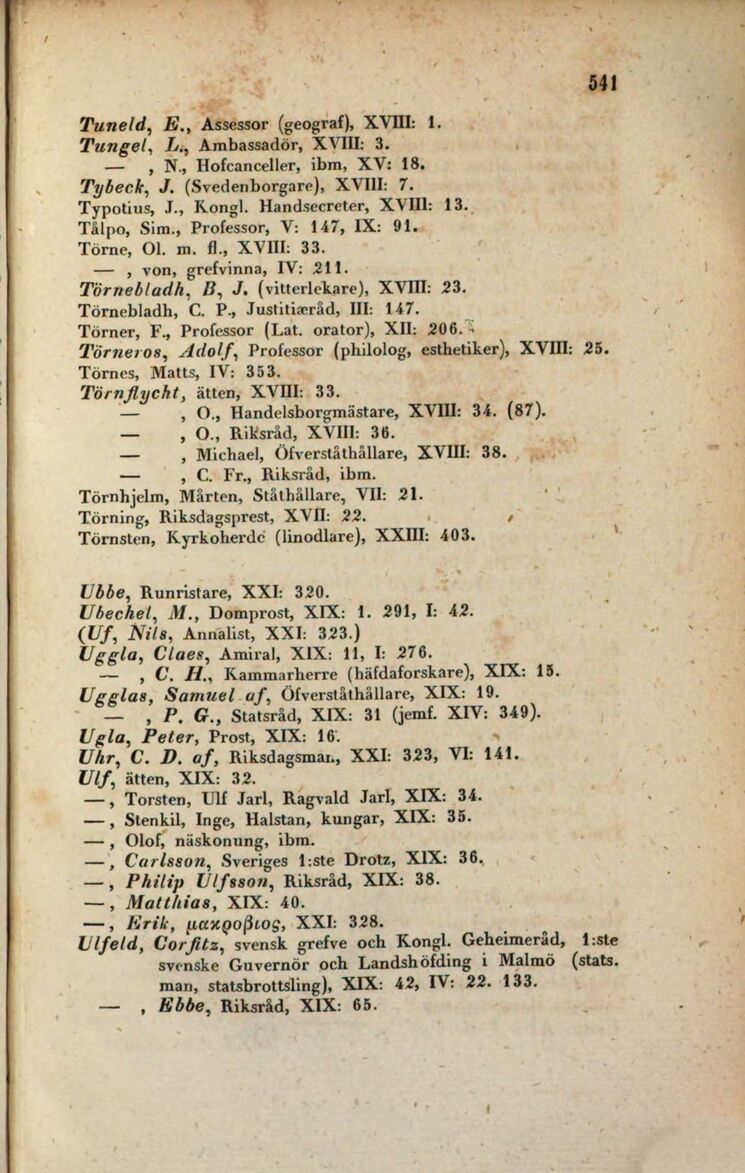 541
Tuneld, E., Assessor (geograf), XVIII: 1.
Tungel, L., Ambassadör, XVIII: 3.
— , N., Hofcanceller, ibm, XV: 18.
Tybeck, J. (Svedenborgare), XVIII: 7.
Typotius, J., Kongl. Handsecreter, XVIII: 13.
Tålpo, Sim., Professor, V: 147, IX: 91.
Törne, Ol. m. fl., XVIII: 33.
— , von, grefvinna, IV: 211.
Törnebladh, B, J. (vitterlekare), XVIII: 23.
Törnebladh, C. P., Justitiæråd, III: 147.
Törner, F., Professor (Lat. orator), XII: 206.
Törneros, Adolf, Professor (philolog, esthetiker), XVIII: 25.
Törnes, Matts, IV: 353.
Törnflycht, ätten, XVIII: 33.
— , O., Handelsborgmästare, XVIII: 34. (87).
— , O., Riksråd, XVIII: 36.
— , Michael, Öfverståthållare, XVIII: 38.
— , C. Fr., Riksråd, ibm.
Törnhjelm, Mårten, Ståthållare, VII: 21.
Törning, Riksdagsprest, XVII: 22.
Törnsten, Kyrkoherde (linodlare), XXIII: 403.
Ubbe, Runristare, XXI: 320.
Ubechel, M., Domprost, XIX: 1. 291, I: 42.
(Uf, Nils, Annalist, XXI: 323.)
Uggla, Claes, Amiral, XIX: 11, I: 276.
— , C. H., Kammarherre (häfdaforskare), XIX: 15.
Ugglas, Samuel af, Öfverståthållare, XIX: 19.
— , P. G., Statsråd, XIX: 31 (jemf. XIV: 349).
Ugla, Peter, Prost, XIX: 16.
Uhr, C. D. af, Riksdagsman, XXI: 323, VI: 141.
Ulf, ätten, XIX: 32.
— , Torsten, Ulf Jarl, Ragvald Jarl, XIX: 34.
— , Stenkil, Inge, Halstan, kungar, XIX: 35.
— , Olof, näskonung, ibm.
— , Carlsson, Sveriges 1:ste Drotz, XIX: 36.
— , Philip Ulfsson, Riksråd, XIX: 38.
— , Matthias, XIX: 40.
— , Erik, μακροβιος, XXI: 328.
Ulfeld, Corfitz, svensk grefve och Kongl. Geheimeråd, 1:ste
svenske Guvernör och Landshöfding i Malmö (stats.
man, statsbrottsling), XIX: 42, IV: 22. 133.
— , Ebbe, Riksråd, XIX: 65.